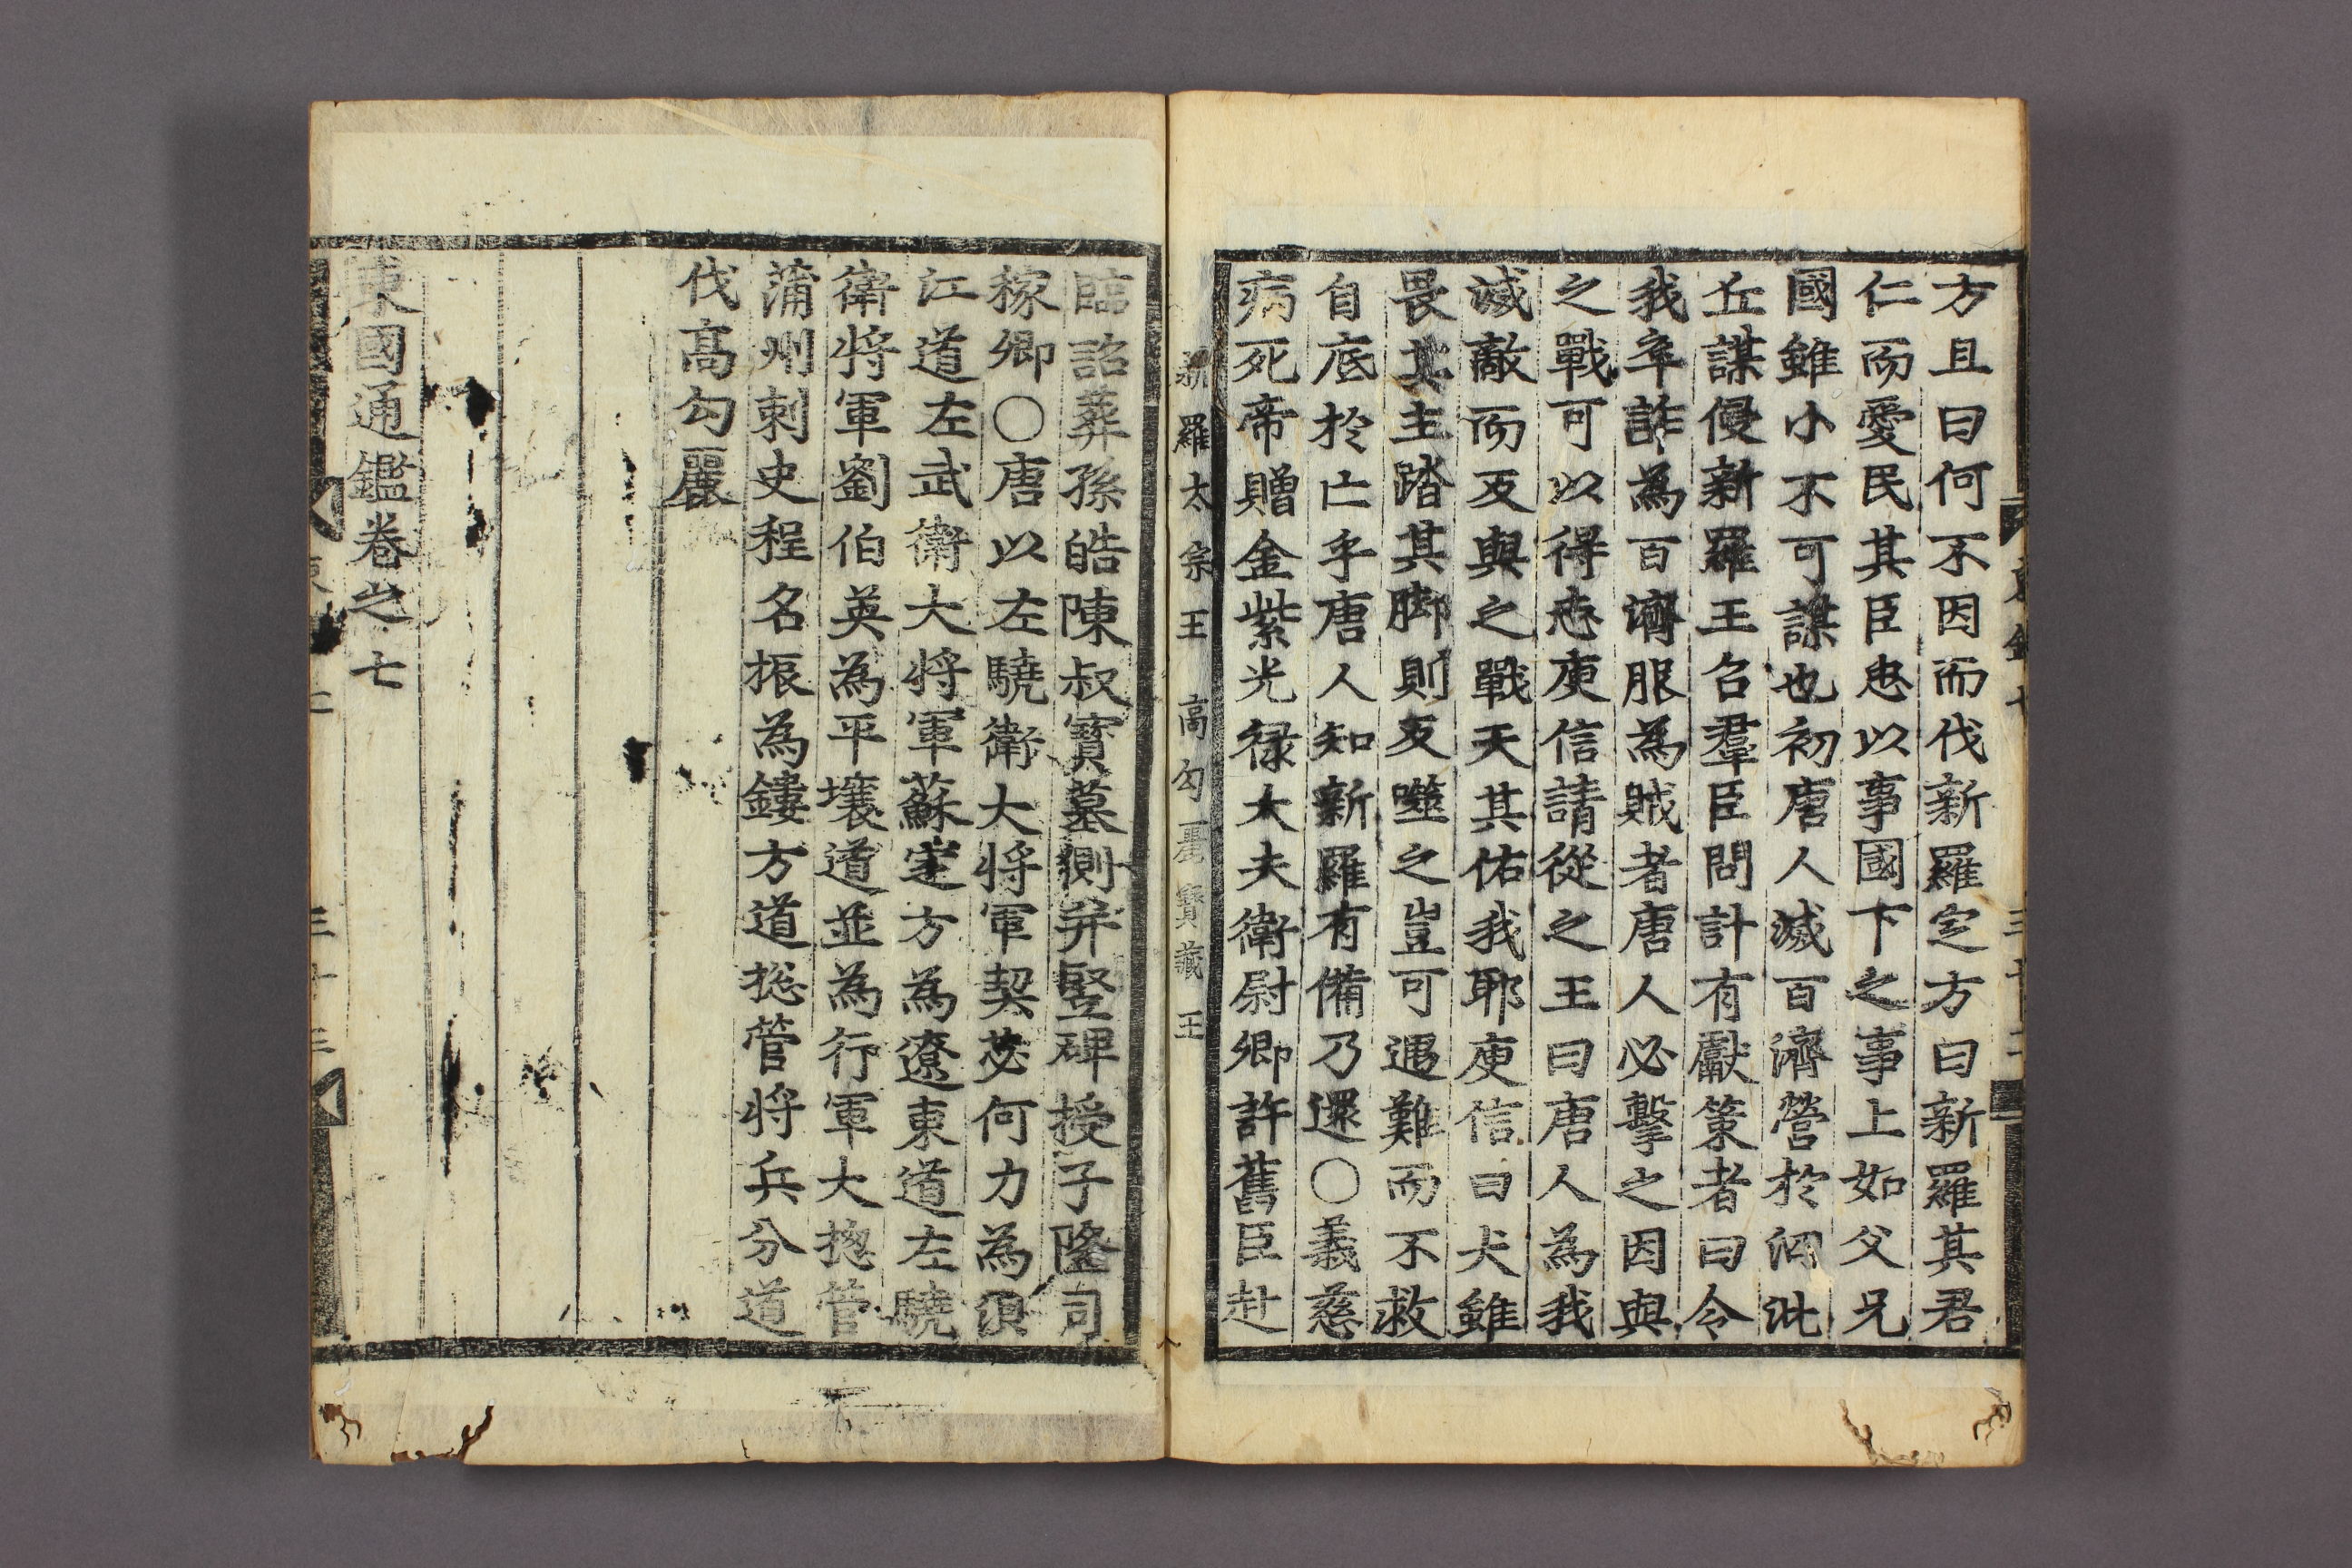 方且曰何不因而伐新羅定方曰新羅其君
仁而愛民其臣忠以事國下之事上如父兄
國雖小不可謀也初唐人滅百濟營於泗沘
丘謀侵新羅王召羣臣問計有獻策者曰令
我卒詐為百濟服為賊者唐人必擊之因與
之戰可以得志庾信請從之王曰唐人為我
滅敵而反與之戰天其佑我耶庾信曰犬雖
畏其主踏其脚則反噬之豈可遇難而不救
自底於亡乎唐人知新羅有備乃還○義慈
病死帝贈金紫光祿大夫衛尉卿許舊臣赴
新羅太宗王 高勾麗寶藏王
臨詔葬孫皓陳叔寶墓側并竪碑授子隆司
稼卿○唐以左驍衛大將軍契苾何力為浿
江道左武衛大將軍蘇定方為遼東道左驍
衛將軍劉伯英為平壤道並為行軍大揔管
蒲州刺史程名振為鏤方道揔管將兵分道
伐高勾麗
東國通鑑卷之七
三十三